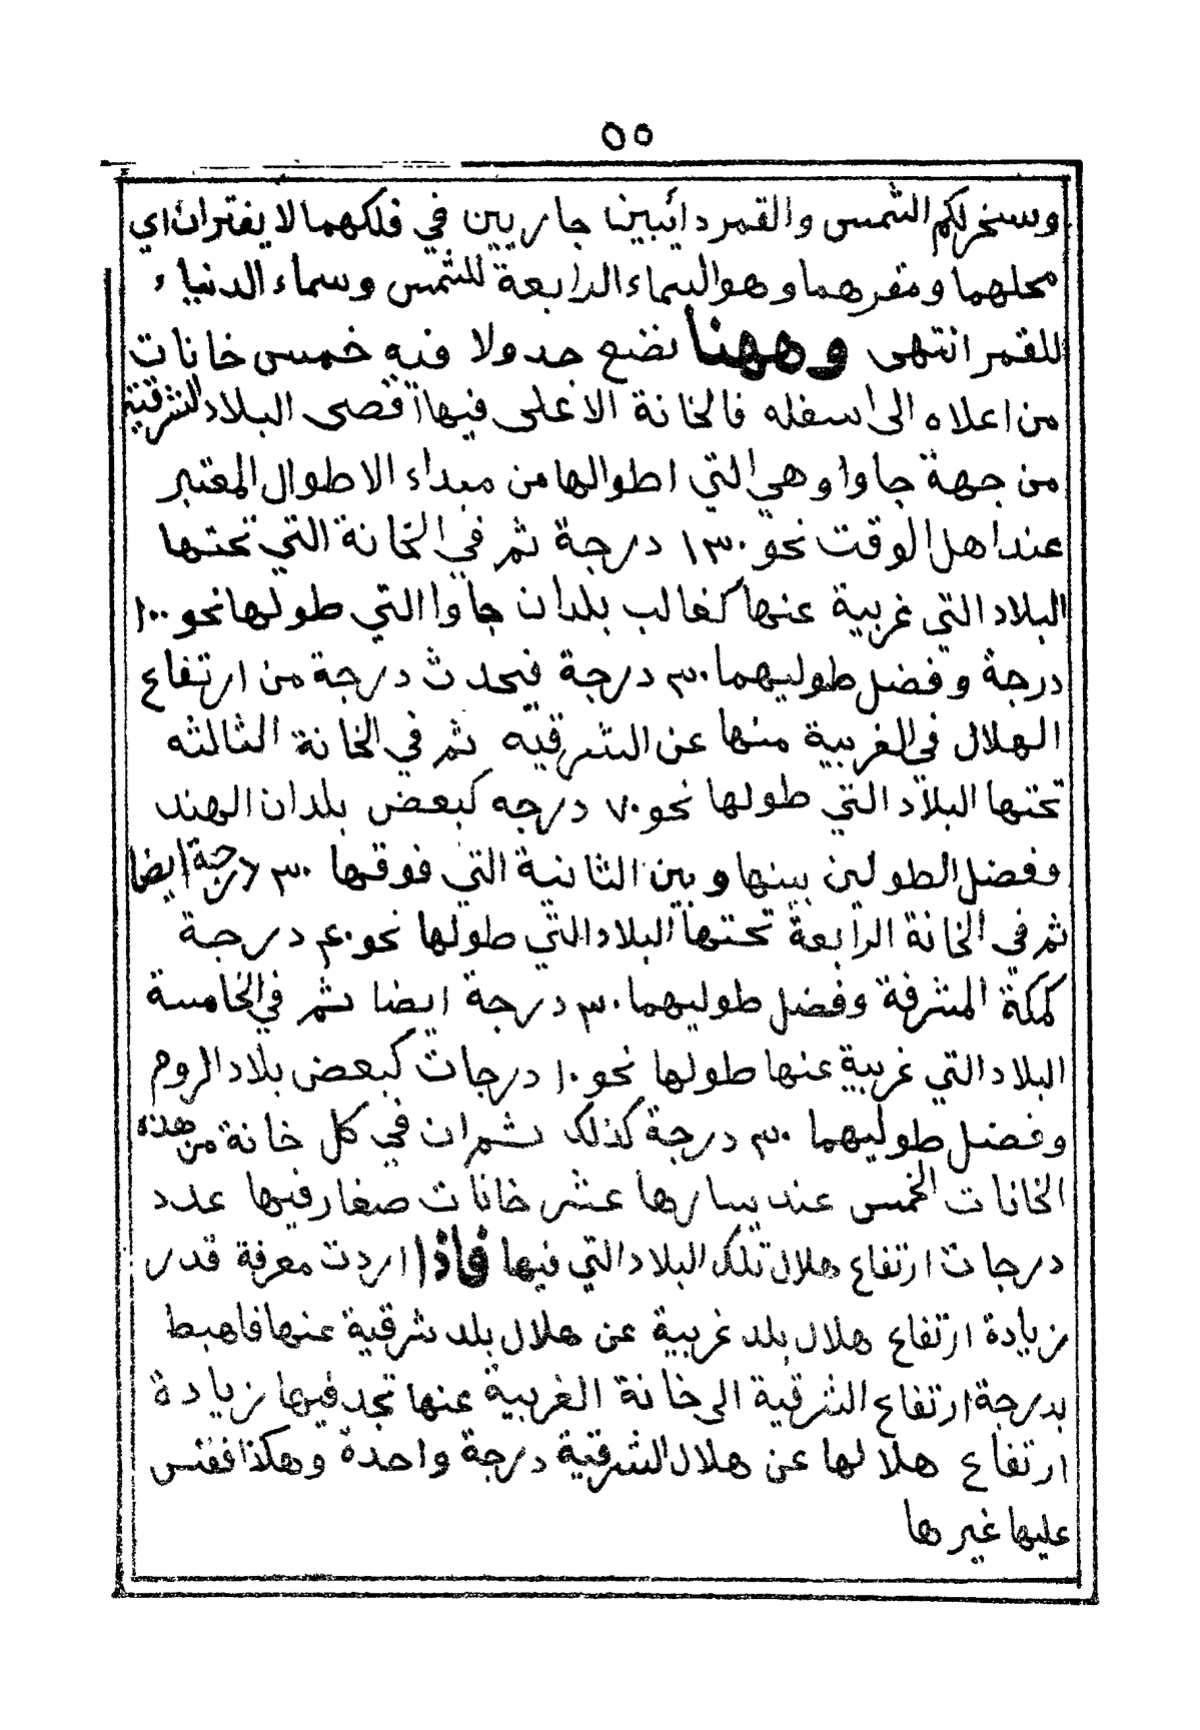 ٥٥
وسخر لكم الشمس والقمر دائبين جاريين في فلكهما لا يفتران اي
محلهما ومقرهما وهو السماء الرابعة للشمس وسماء الدنيا
للقمر انتهى وههنا نضع جدولا فيه خمس خانات
من اعلاه الى اسفله فالخانة الاعلى فيها اقصى البلاد الشرقية
من جهة جاوا وهي التي اطوالها من مبداء الاطوال المعتبر
عند اهل الوقت نحو ١٣٠ درجة ثم في الخانة التي تحتها
البلاد التي غربية عنها كغالب بلدان جاوا التي طولها نحو ١٠٠
درجة وفضل طوليهما ٣٠ درجة فيحدث درجة من ارتفاع
الهلال في الغربية منها عن الشرقيه ثم في الخانة الثالثه
تحتها البلاد التي طولها نحو ٧٠ درجه كبعض بلدان الهند
وفضل الطولين بينها وبين الثانية التي فوقها ٣٠ درجة ايضا
ثم في الخانة الرابعة تحتها البلاد التي طولها نحو ٤٠ درجة
كمكة المشرفة وفضل طوليهما ٣٠ درجة ايضا ثم في الخامسة
البلاد التي غربية عنها طولها نحو ١٠ درجات كبعض بلاد الروم
وفضل طوليهما ٣٠ درجة كذلك ثم ان في كل خانة من هذه
الخانات الخمس عند يسارها عشر خانات صغار فيها عدد
درجات ارتفاع هلال تلك البلاد التي فيها فاذا اردت معرفة قدر
زيادة ارتفاع هلال بلد غربية عن هلال بلد شرقية عنها فاهبط
بدرجة ارتفاع الشرقية الى خانة الغربية عنها تجد فيها زيادة
ارتفاع هلالها عن هلال الشرقية درجة واحدة وهكذا فقس
عليها غيرها